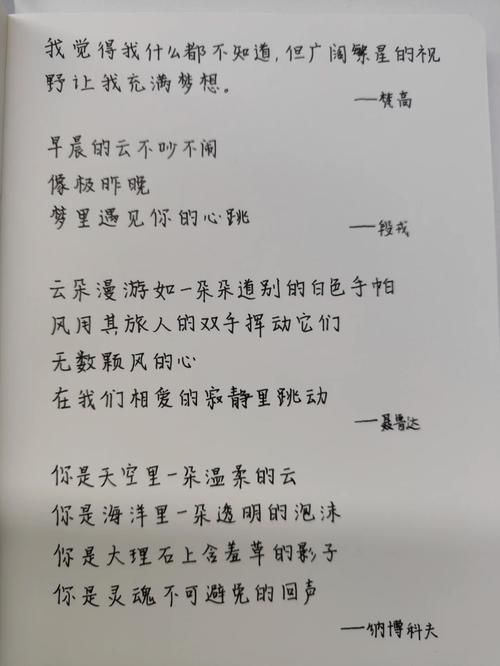 我觉得我什么都不知道,但广阔繁星的视
野让我充满梦想。
——梵高
早晨的云不吵不闹
像极昨晚
梦里遇见你的心跳
——段戎
云朵漫游如一朵朵道别的白色手帕
风用其旅人的双手挥动它们
无数颗风的心
在我们相爱的寂静里跳动
——聂鲁达
你是天空里一朵温柔的云
你是海洋里一朵透明的泡沫
你是大理石上含羞草的影子
你是灵魂不可避免的回声
——纳博科夫